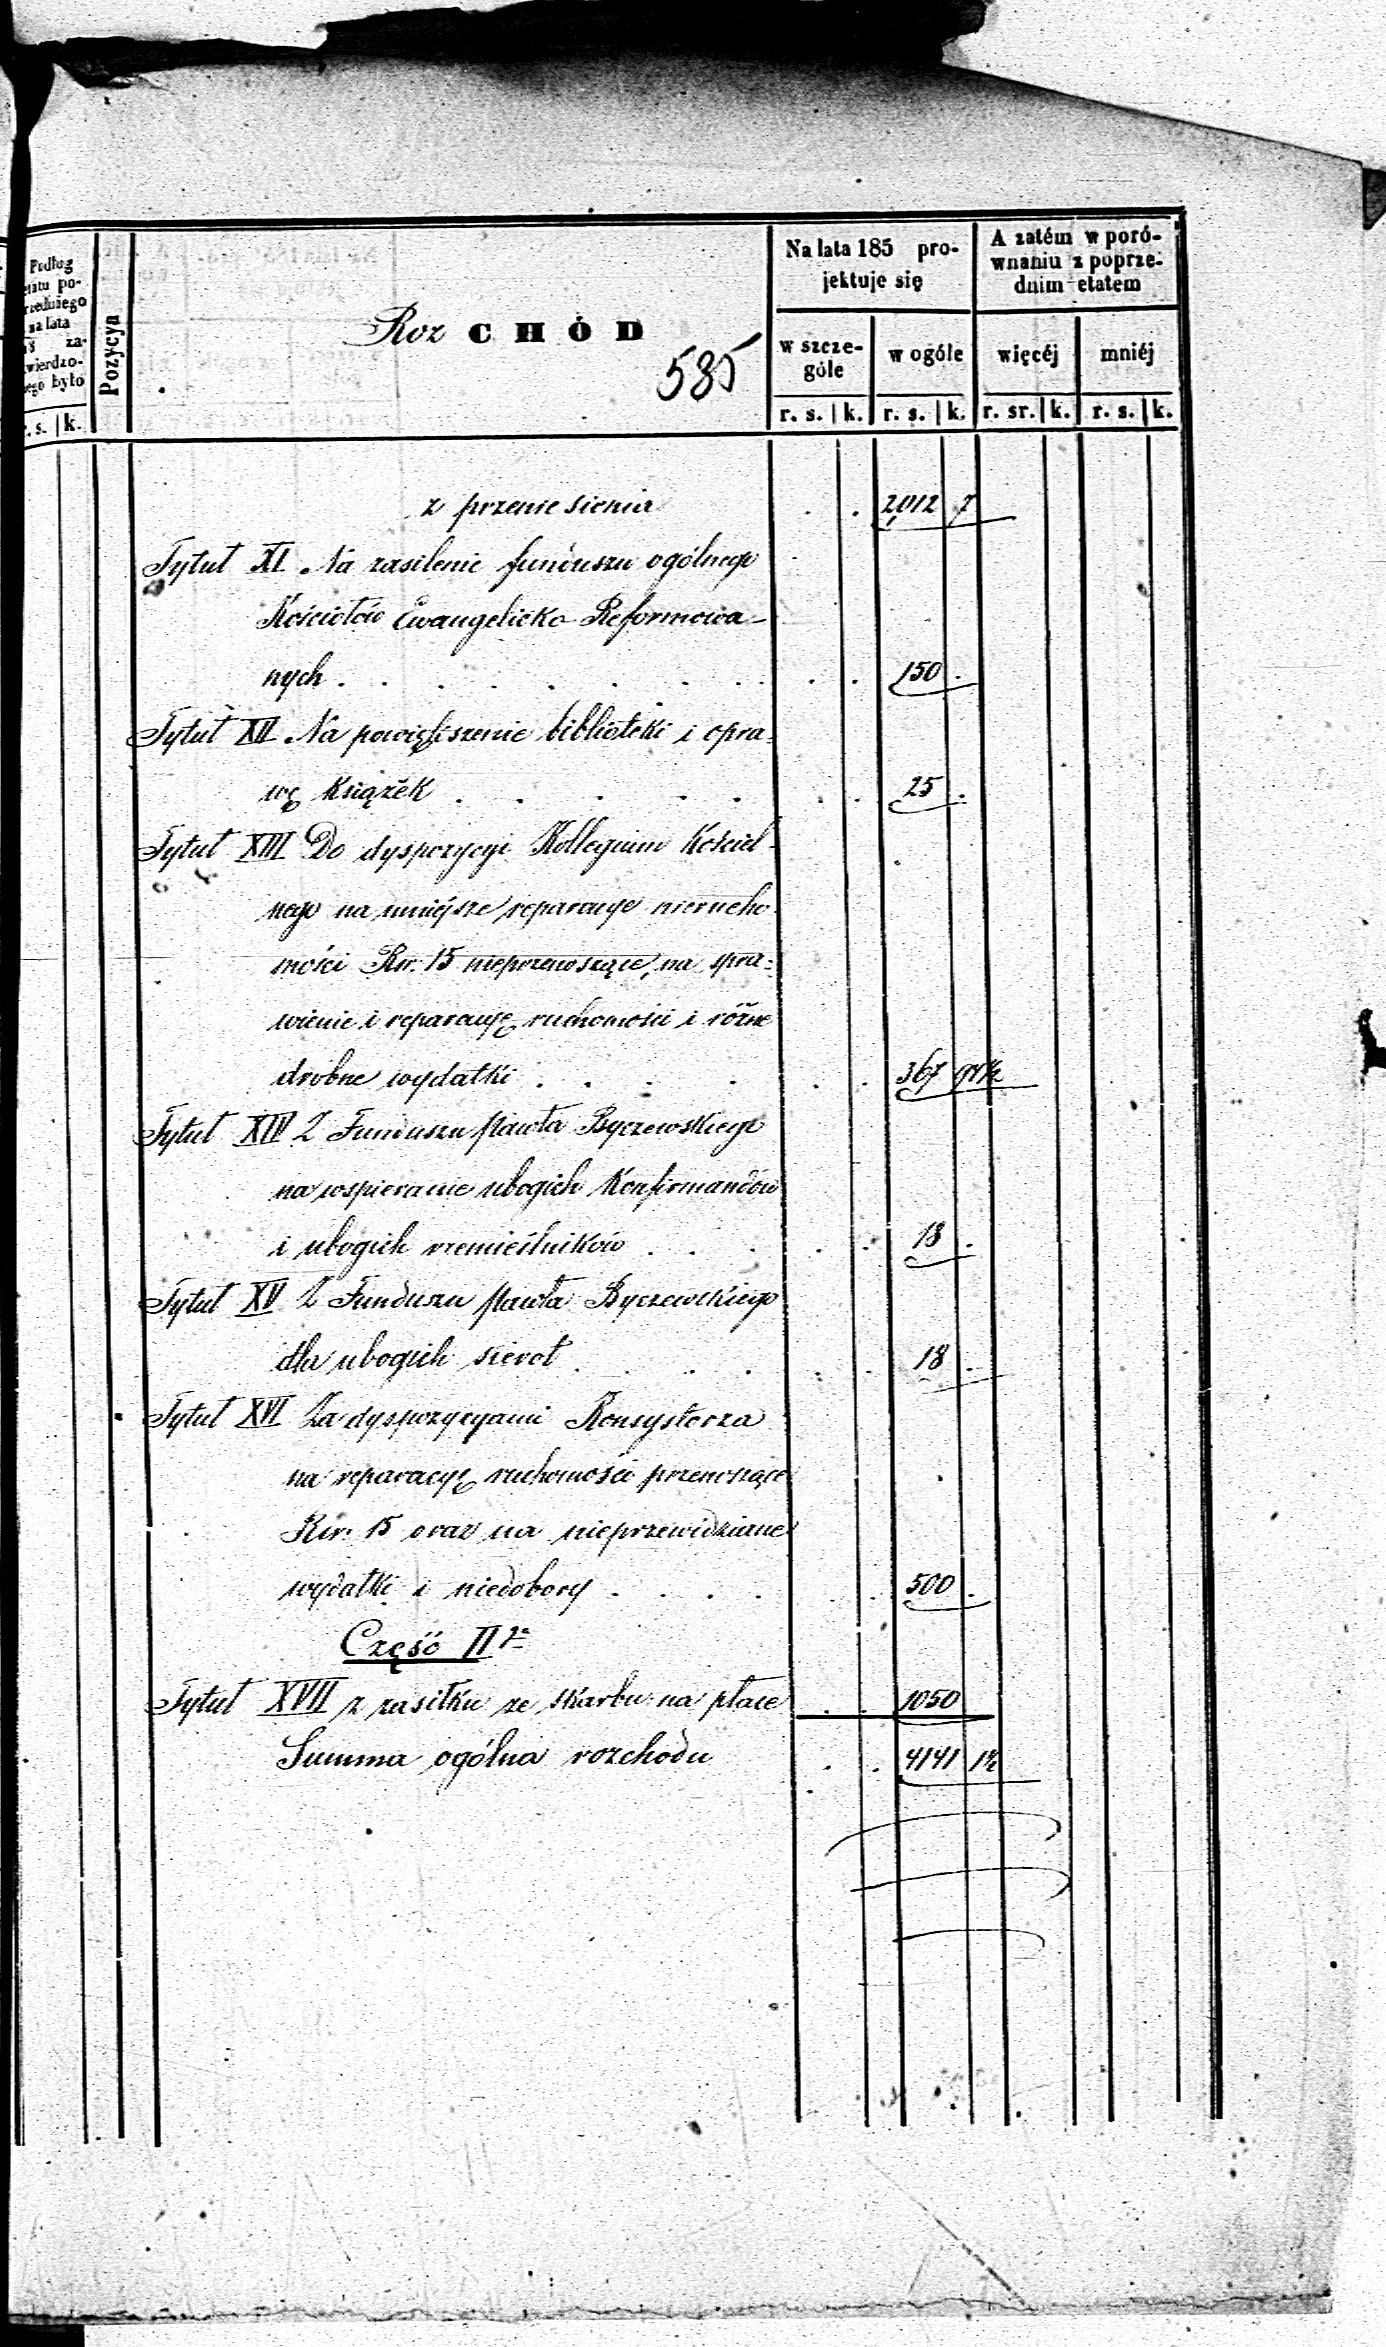 Podług
etatu po-
przedniego
na lata
18 za-
twierdzo-
nego było
r. s. | k.
Pozycya
Roz CHÓD
585
Na lata 185 pro-
jektuje się
w szcze-
góle
w ogóle
r. s. | k. r. s. | k.
A zatém w poró-
wnaniu z poprze-
dnim etatem
więcéj mniéj
r. sr. | k. r. s. | k.
z przeniesienia . . 2,012 7
Tytuł XI Na zasilenie funduszu ogólnego
Kościołów Ewangelicko Reformowa-
nych . . . . . . . . . 150 .
Tytuł XII Na powiększenie biblioteki i opra-
wę Książek . . . . . . . 25 .
Tytuł XIII Do dyspozycyi Kollegium Kościel-
nego na mniejsze reparacye nierucho-
mości Rsr. 15 nieprzenoszące, na spra-
wienie i reparacyę ruchomości i różne
drobne wydatki . . . . . . 367 94½
Tytuł XIV Z Funduszu Pawła Byczewskiego
na wspieranie ubogich Konfirmandów
i ubogich rzemieślników . . . . . 18 .
Tytuł XV Z Funduszu Pawła Byczewskiego
dla ubogich sierot . . . . . . 18 .
Tytuł XVI Za dyspozycyami Konsystorza
na reparacyę ruchomości przenoszące
Rsr. 15 oraz na nieprzewidziane
wydatki i niedobory . . . . . . 500 .
Część II ga
Tytuł XVII z zasiłku ze skarbu na płace . . 1050
Summa ogólna rozchodu . . 4141 1½